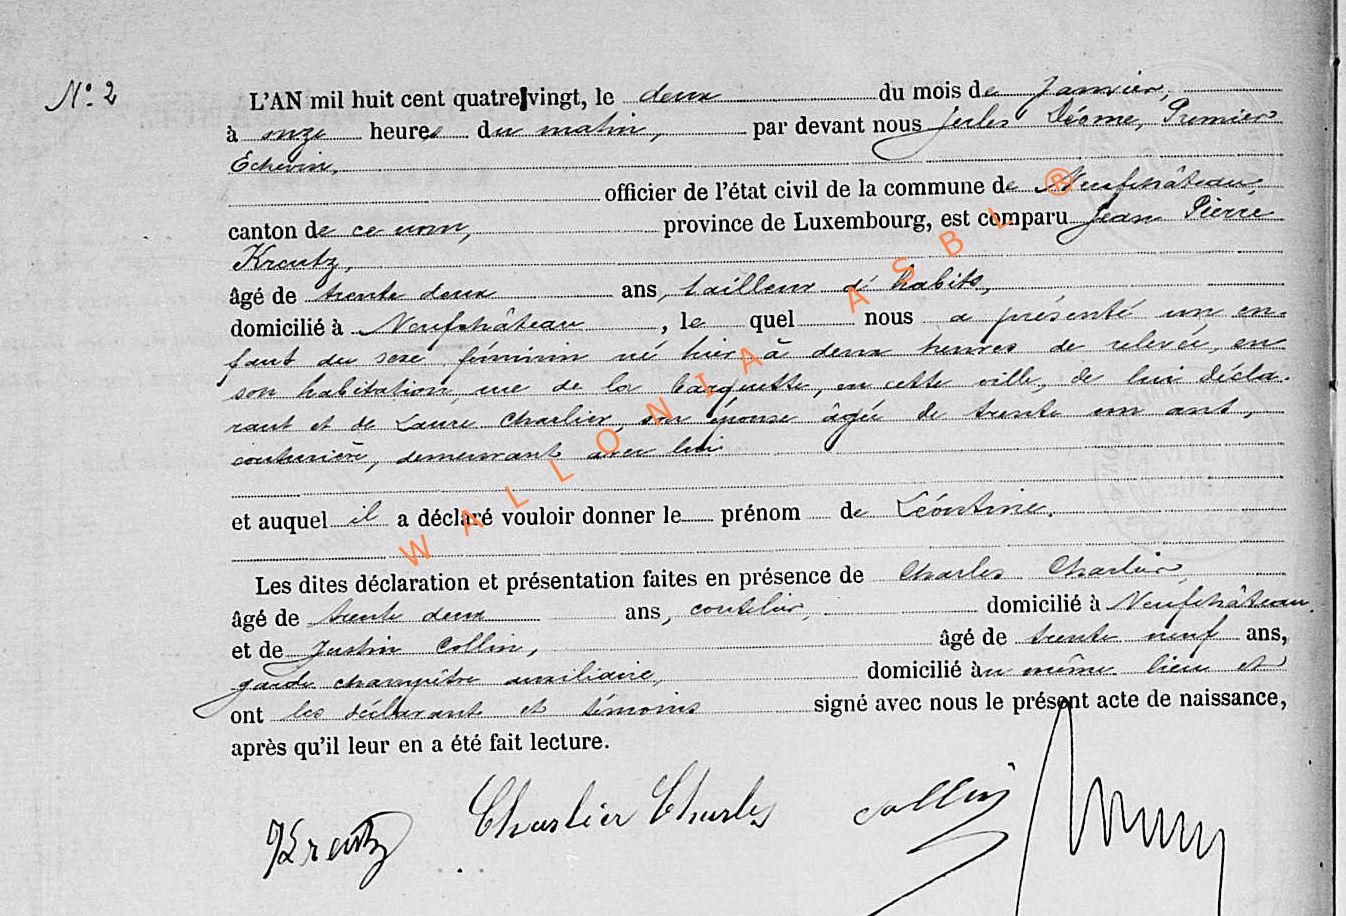 N° 2
L'AN mil huit cent quatre vingt, le deux du mois de Janvier,
à onze heures du matin, par devant nous Jules Déome, Premier
Echevin,
officier de l'état civil de la commune de Neufchâteau,
canton de ce nom, province de Luxembourg, est comparu Jean Pierre
Kreutz,
âgé de trente deux ans, tailleur d'habits,
domicilié à Neufchâteau, le quel nous a présenté un en-
fant du sexe féminin né hier à deux heures de relevée, en
son habitation, rue de la barquette, en cette ville, de lui décla-
rant et de Laure Charlier, son épouse âgée de trente un ans,
couturière, demeurant avec lui
et auquel il a déclaré vouloir donner le prénom de Léontine.
Les dites déclaration et présentation faites en présence de Charles Charlier,
âgé de trente deux ans, coutelier, domicilié à Neufchâteau,
et de Justin Collin, âgé de trente neuf ans,
garde champêtre auxiliaire, domicilié au même lieu et
ont les déclarant et témoins signé avec nous le présent acte de naissance,
après qu'il leur en a été fait lecture.
Kreutz Charlier Charles Collin
WALLONIA ASBL ®